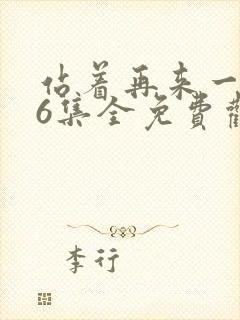 占着再来一
6集全免费
李行